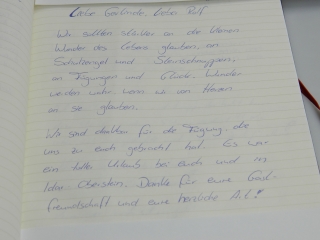 Liebe Gerlinde, lieber Rolf
Wir sollten stärker an die kleinen
Wunder des Lebens glauben, an
Schutzengel und Sternschnuppen,
an Fügungen und Glück. Wunder
werden wahr, wenn wir von Herzen
an sie glauben.
Wir sind dankbar für die Fügung, die
uns zu euch gebracht hat. Es war
ein toller Urlaub bei euch und in
Idar-Oberstein. Danke für eure Gast-
freundschaft und eure herzliche Art!